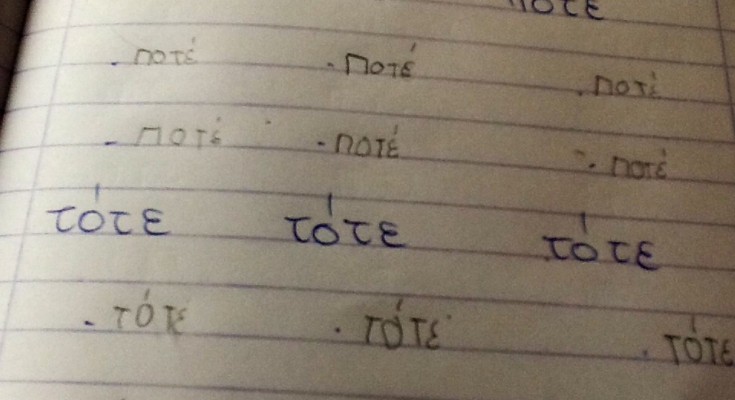 ποτέ ποτέ ποτέ
ποτέ ποτέ ποτέ
τότε τότε τότε
τότε τότε τότε